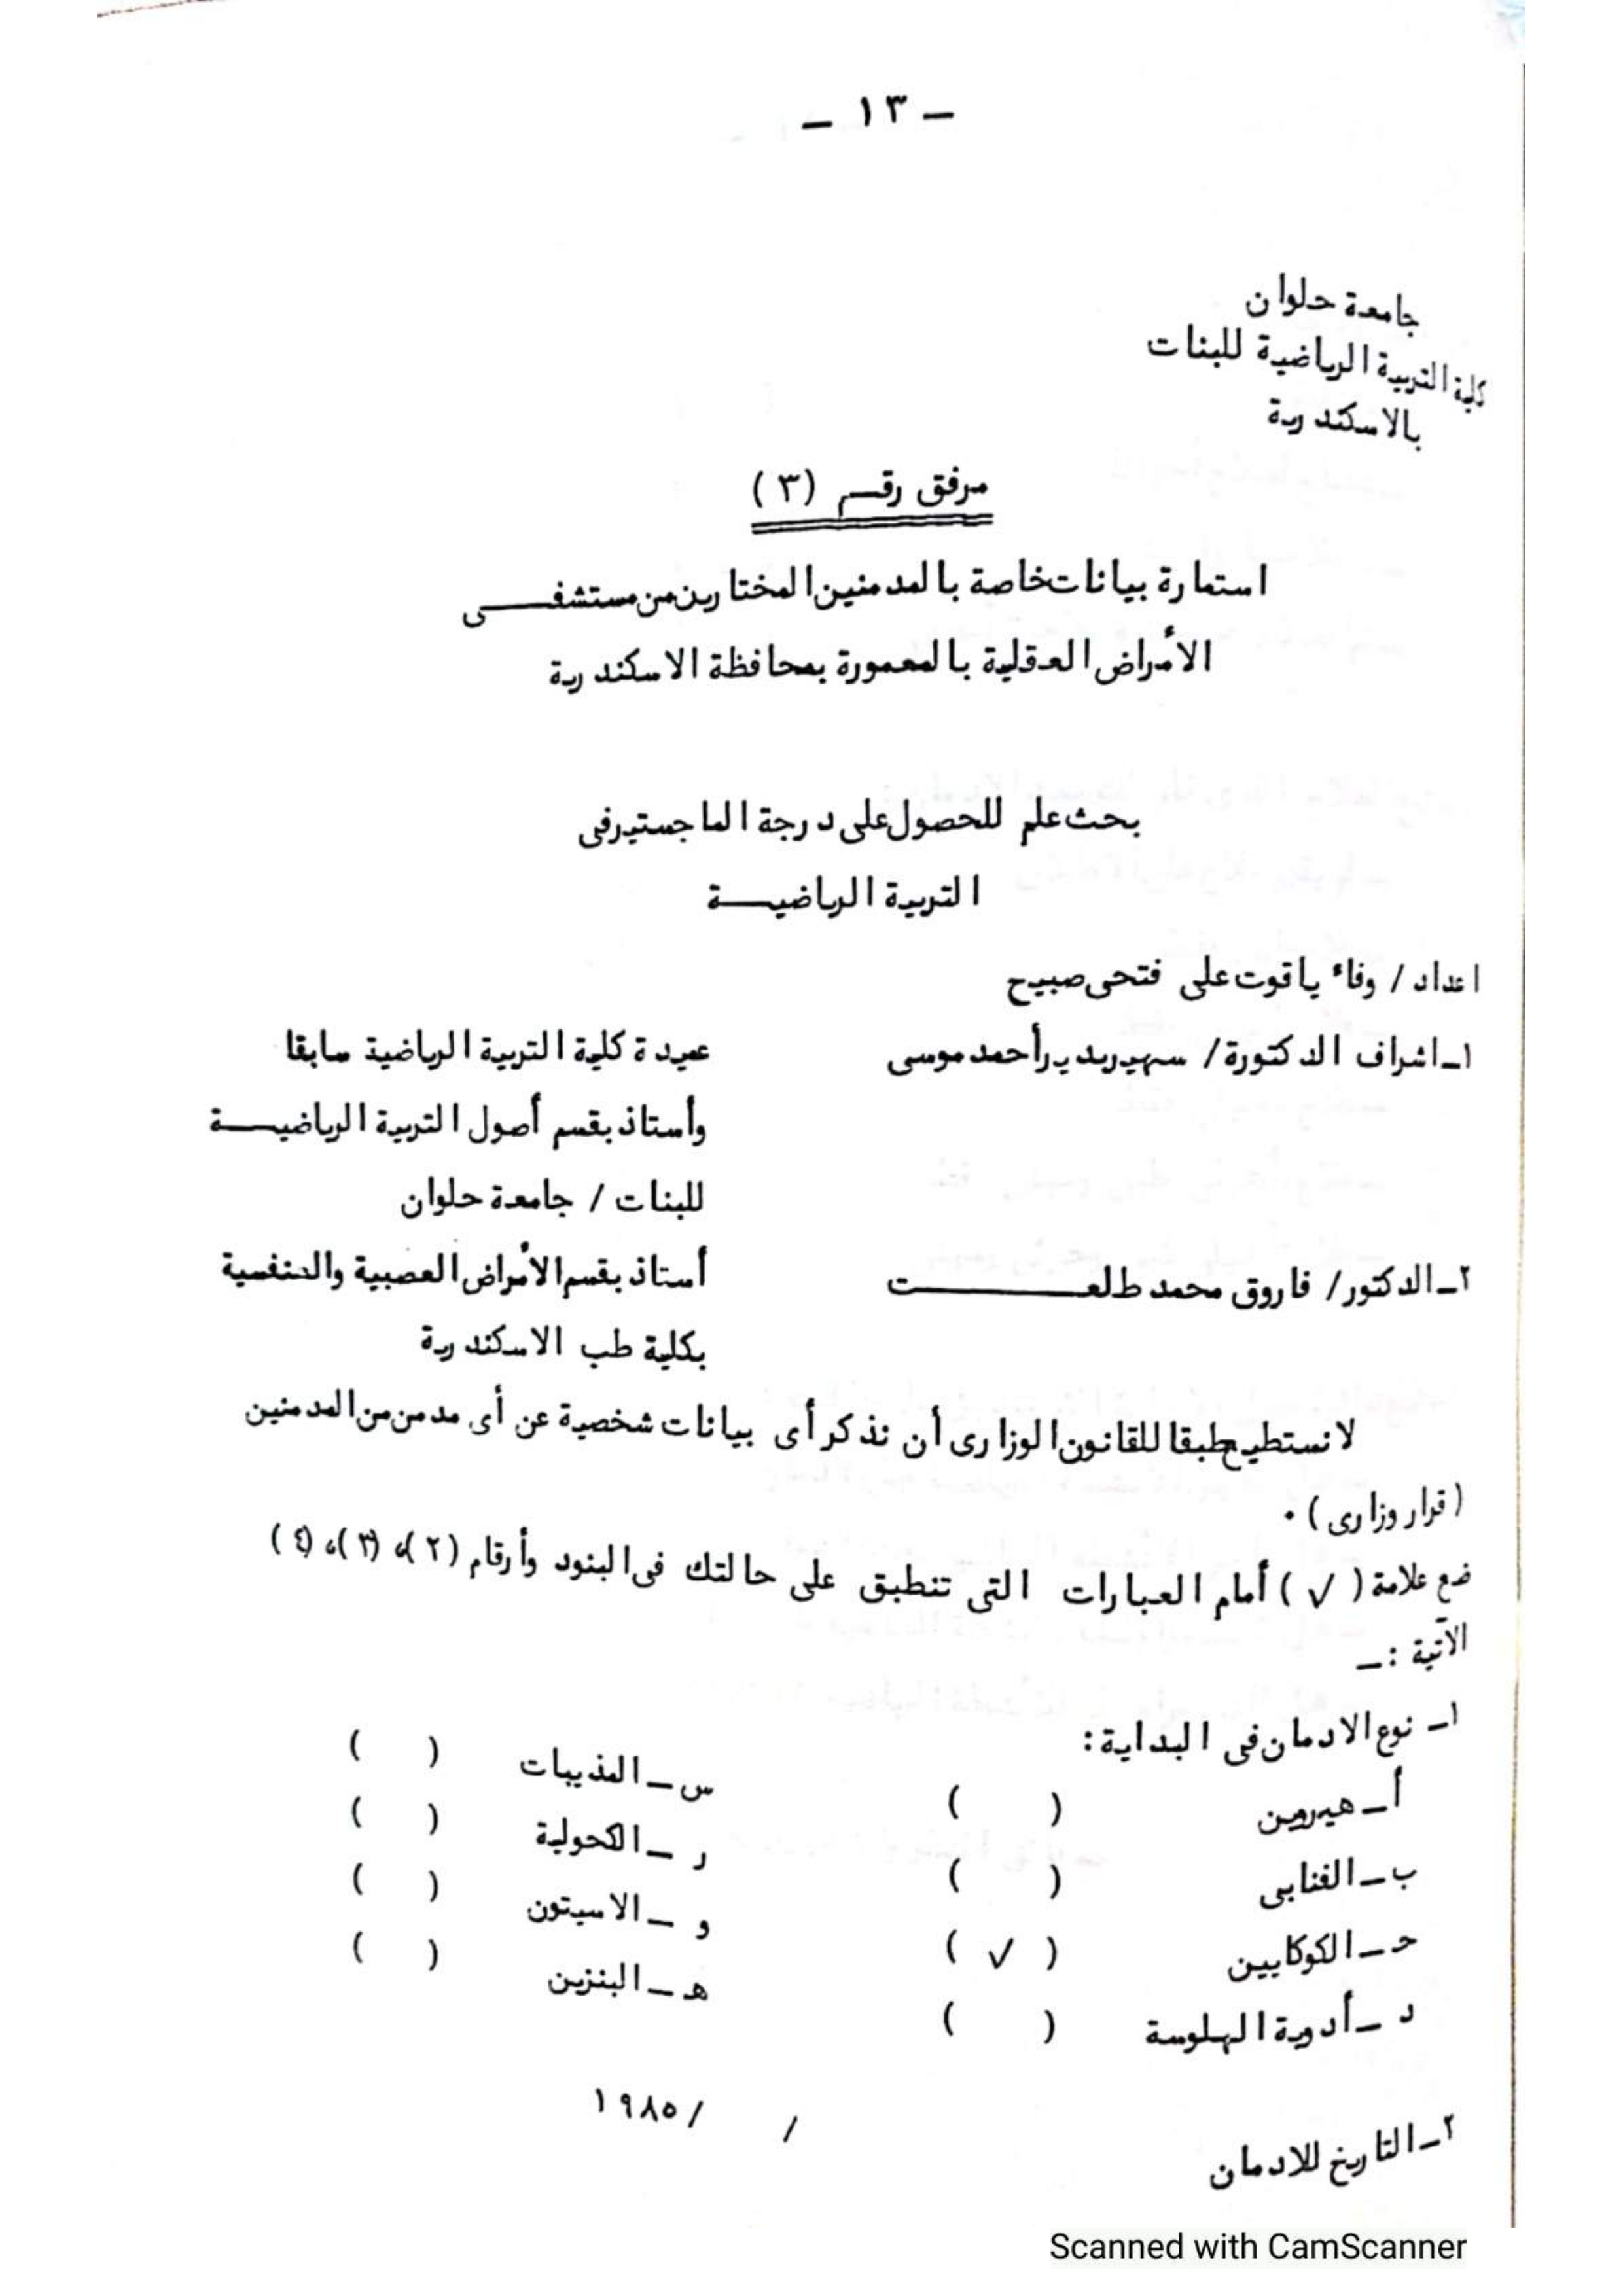 – ١٣ –
جامعة حلوان
كلية التربية الرياضية للبنات
بالاسكندرية
مرفق رقم (٣)
استمارة بيانات خاصة بالمدمنين المختارين من مستشفى
الأمراض العقلية بالمعمورة بمحافظة الاسكندرية
بحث علم للحصول على درجة الماجستير فى
التربية الرياضية
اعداد / وفاء ياقوت على فتحى صبيح
١ــ اشراف الدكتورة / سهير بدير أحمد موسى عميدة كلية التربية الرياضية سابقا
وأستاذ بقسم أصول التربية الرياضية
للبنات / جامعة حلوان
٢ــ الدكتور / فاروق محمد طلعت أستاذ بقسم الأمراض العصبية والنفسية
بكلية طب الاسكندرية
لا نستطيع طبقا للقانون الوزارى أن نذكر أى بيانات شخصية عن أى مدمن من المدمنين
(قرار وزارى) ٠
ضع علامة ( √ ) أمام العبارات التى تنطبق على حالتك فى البنود وأرقام (٢)، (٣)، (٤)
الآتية :ــ
١ــ نوع الادمان فى البداية :
أ ــ هيروين ( ) س ــ المذيبات ( )
ب ــ القنابى ( ) ر ــ الكحولية ( )
حـ ــ الكوكايين ( √ ) و ــ الاسيتون ( )
د ــ أدوية الهلوسة ( ) هـ ــ البنزين ( )
٢ــ التاريخ للادمان / / ١٩٨٥
Scanned with CamScanner